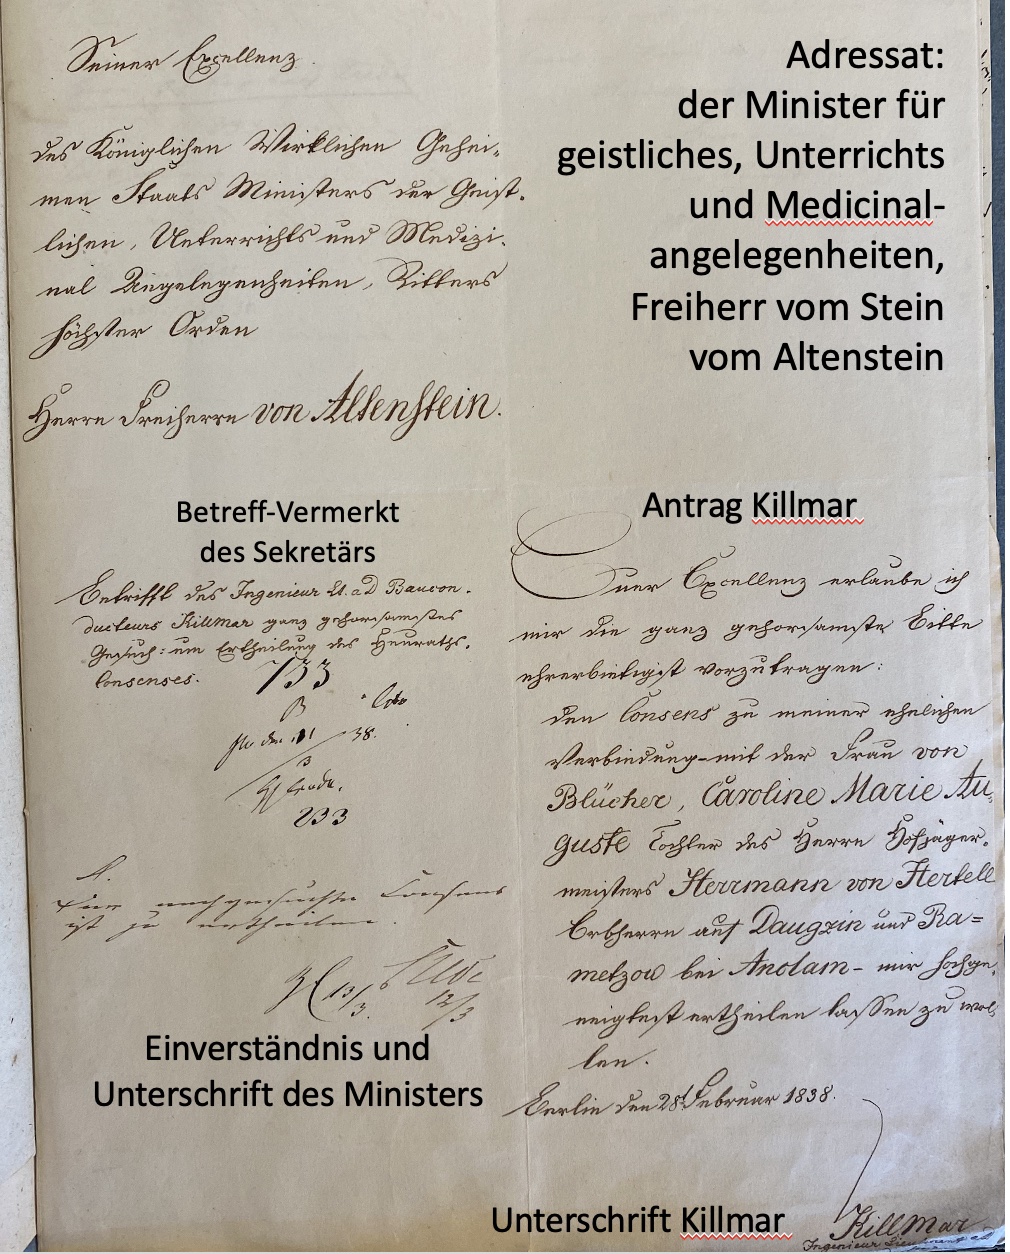 Seiner Excellenz
des Königlichen Wirklichen Gehei-
men Staats Ministers der Geist-
lichen, Unterrichts und Medizi-
nal Angelegenheiten, Ritters
höchster Orden
Herrn Freiherrn von Altenstein.
Adressat:
der Minister für
geistliches, Unterrichts
und Medicinal-
angelegenheiten,
Freiherr vom Stein
vom Altenstein
Betreff-Vermerkt
des Sekretärs
Betrifft des Ingenieur Lt. a D Baucon-
ducteurs Killmar ganz gehorsamstes
Gesuch: um Ertheilung des Heuraths-
Consenses.
733
38.
233
nachgesuchte Consens
ist zu ertheilen.
13/3
12/3
Einverständnis und
Unterschrift des Ministers
Antrag Killmar
Euer Excellenz erlaube ich
mir die ganz gehorsamste Bitte
ehrerbietigst vorzutragen:
den Consens zu meiner ehelichen
Verbindung mit der Frau von
Blücher, Caroline Marie Au-
guste Tochter des Herrn Hofjäger-
meisters Herrmann von Hertell
Erbherrn auf Daugzin und Ra-
metzow bei Anclam - mir hochge-
neigtest ertheilen lassen zu wol-
len.
Berlin den 28t Februar 1838.
Unterschrift Killmar
Killmar
Ingenieur Lieutenant a D